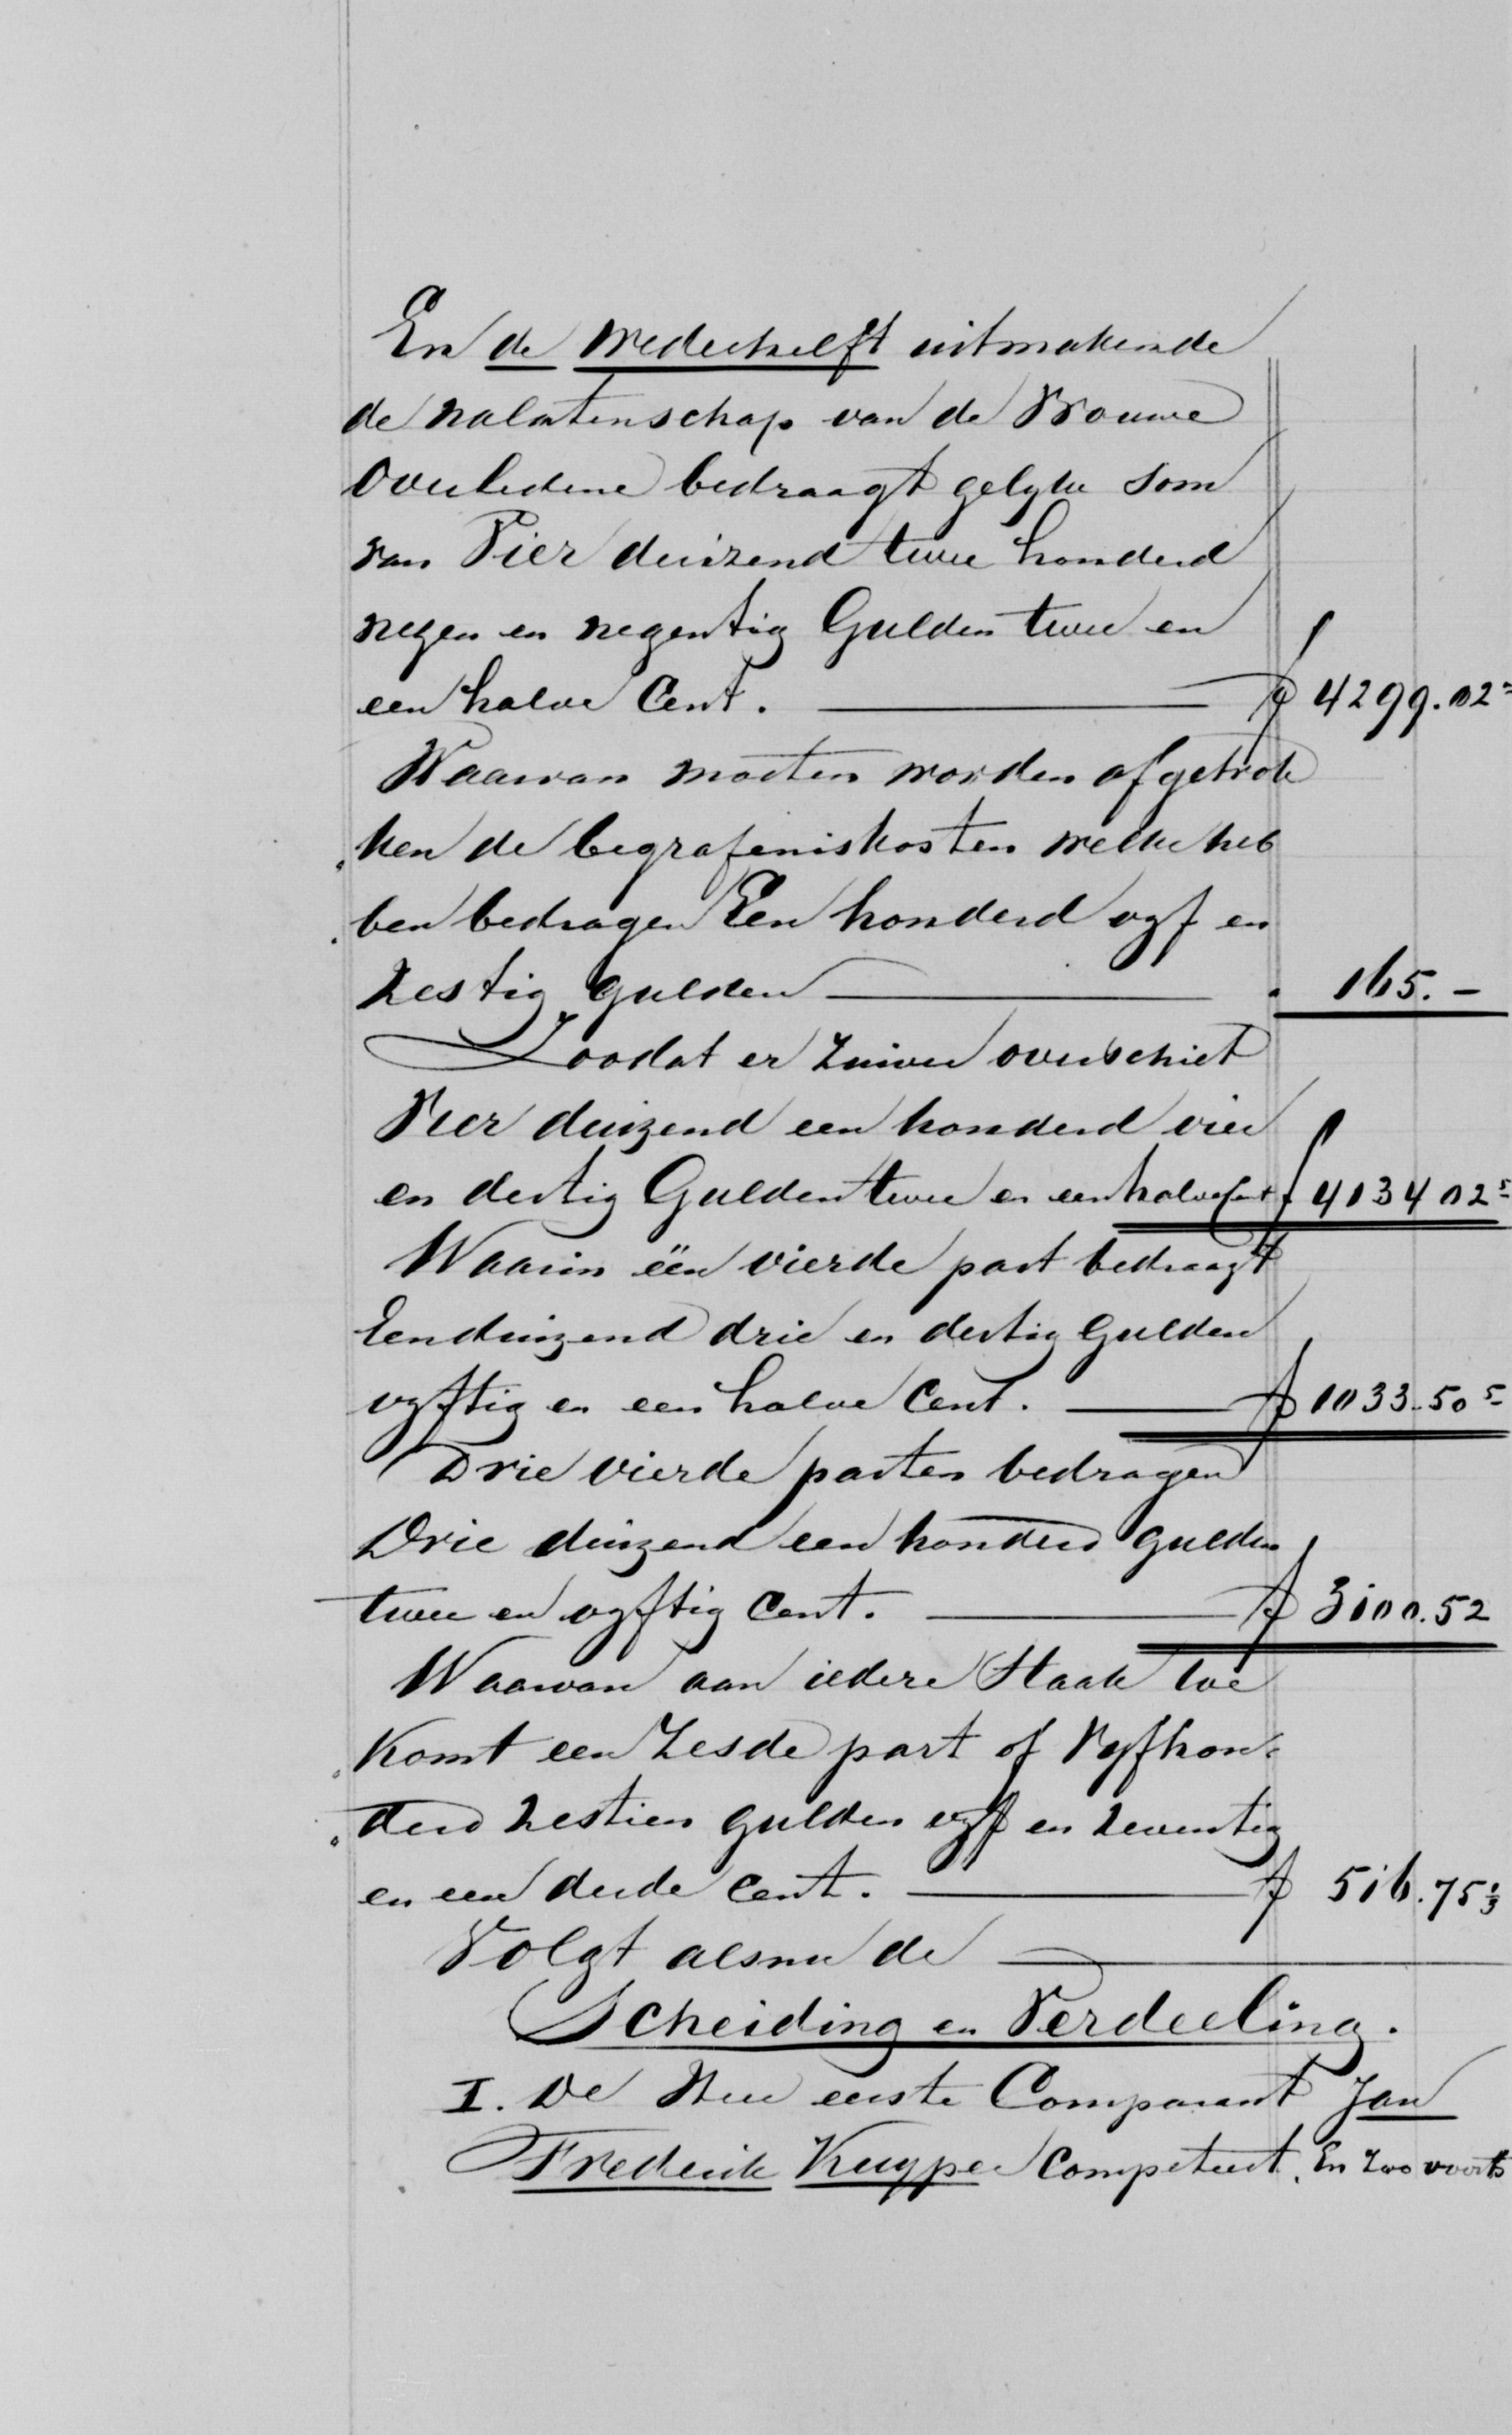 En de wederhelft uitmakende
de nalatenschap van de Vrouwe
Overledene bedraagt gelyke som
van Vier duizend twee honderd
negen en negentig Gulden twee en
een halve Cent. ——— f 4299.02⁵
Waarvan moeten worden afgetrok
„ken de begrafeniskosten welke heb
„ben bedragen Een honderd vyf en
Zestig Gulden ——— „ 165.-
Zoodat er Zuiver overschiet
Vier duizend een honderd vier
en dertig Gulden twee en een halve Cent f 4134 02⁵
Waarin één vierde part bedraagt
Eenduizend drie en dertig Gulden
vyftig en een halve Cent. ——— f 1033.50⁵
Drie vierde parten bedragen
Drie duizend een honderd Gulden
twee en vyftig Cent. ——— f 3100.52
Waarvan aan iedere Staak toe
„komt een Zesde part of Vyfhon-
„derd Zestien gulden vyf en Zeventig
en een derde Cent. ——— f 516.75⅓
Volgt alsnu de ———
Scheiding en Verdeeling.
I. De Heer eerste Comparant Jan
Frederik Kuyper Competeert. En Zoo voorts